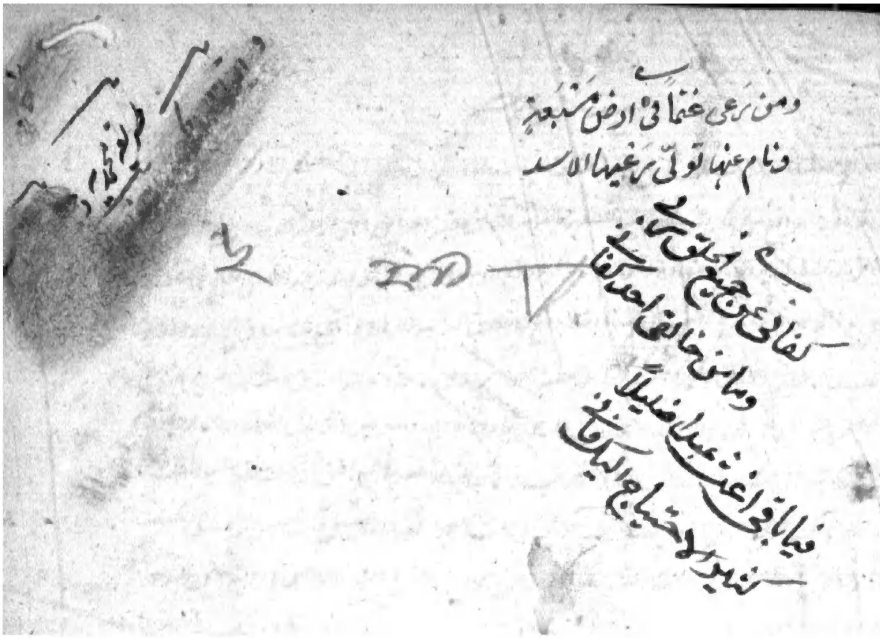 ومن رعى غنماً في ارض مسبعةٍ
ونام عنها تولى رعيها الاسد
كفاني عن جميع الخلق ربي
وما من خالقي احد كفاني
فيا باقي اغث عبدا ضليلاً
كثير الاحتياج اليك فاني